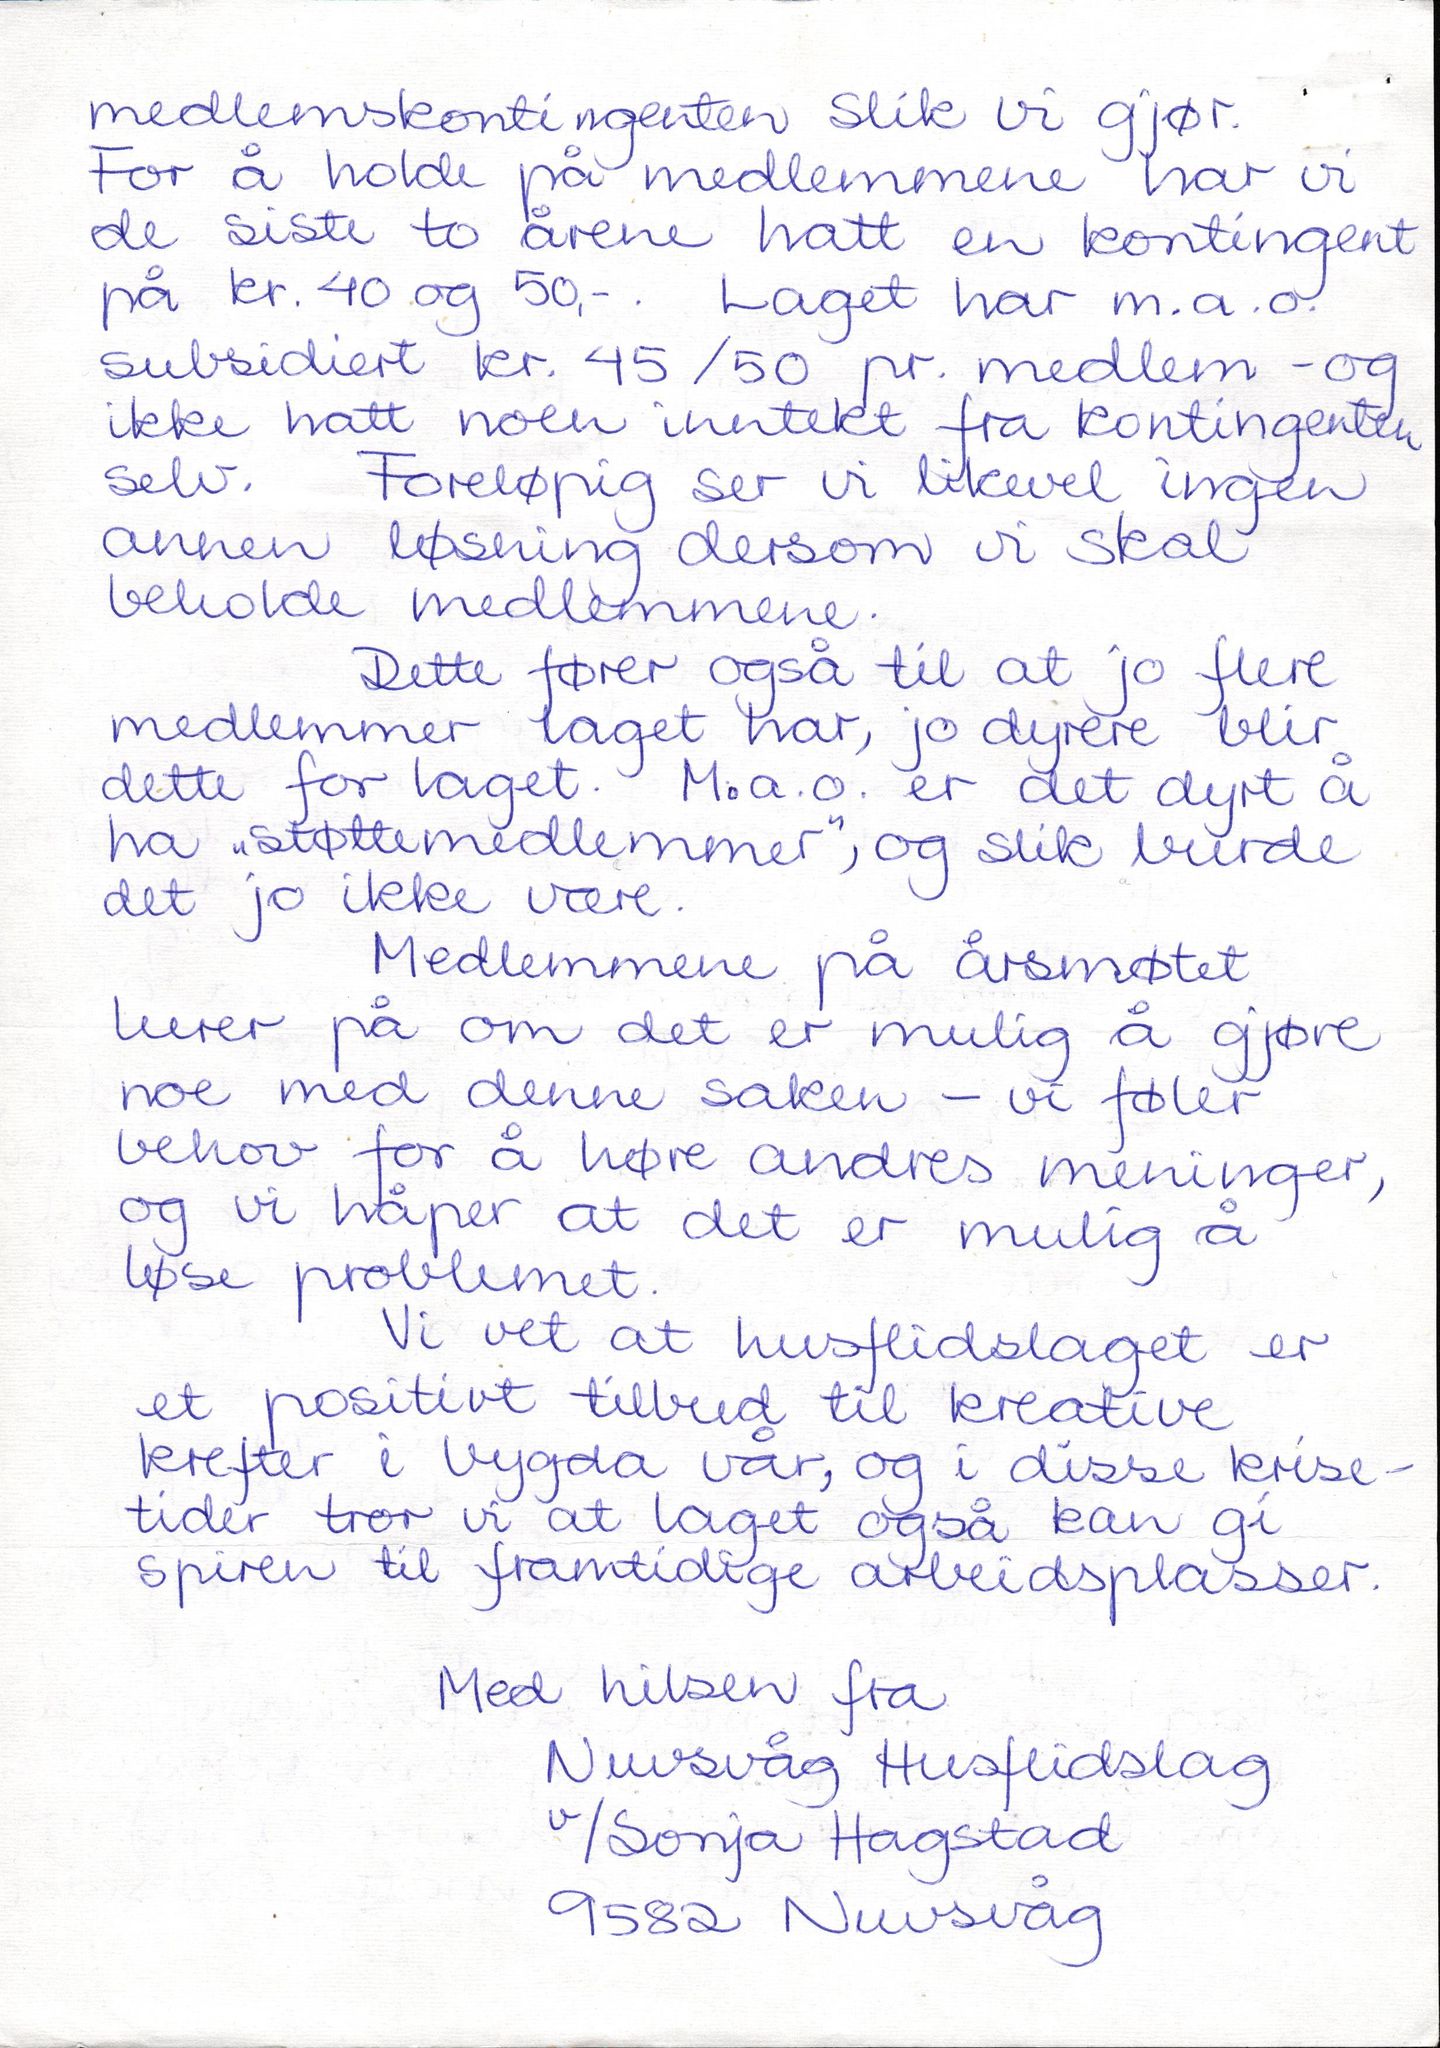 medlemskontingenten slik vi gjør.
For å holde på medlemmene har vi
de siste to årene hatt en kontingent
på kr. 40 og 50,-. Laget har m.a.o.
subsidiert kr. 45/50 pr. medlem - og
ikke hatt noen inntekt fra kontingenten
selv. Foreløpig ser vi likevel ingen
annen løsning dersom vi skal
beholde medlemmene.
Dette fører også til at jo flere
medlemmer laget har, jo dyrere blir
dette for laget. M.a.o. er det dyrt å
ha „støttemedlemmer", og slik burde
det jo ikke være.
Medlemmene på årsmøtet
lurer på om det er mulig å gjøre
noe med denne saken - vi føler
behov for å høre andres meninger,
og vi håper at det er mulig å
løse problemet.
Vi vet at husflidslaget er
et positivt tilbud til kreative
krefter i bygda vår, og i disse krise-
tider tror vi at laget også kan gi
spiren til framtidige arbeidsplasser.
Med hilsen fra
Nuvsvåg Husflidslag
v/Sonja Hagstad
9582 Nuvsvåg